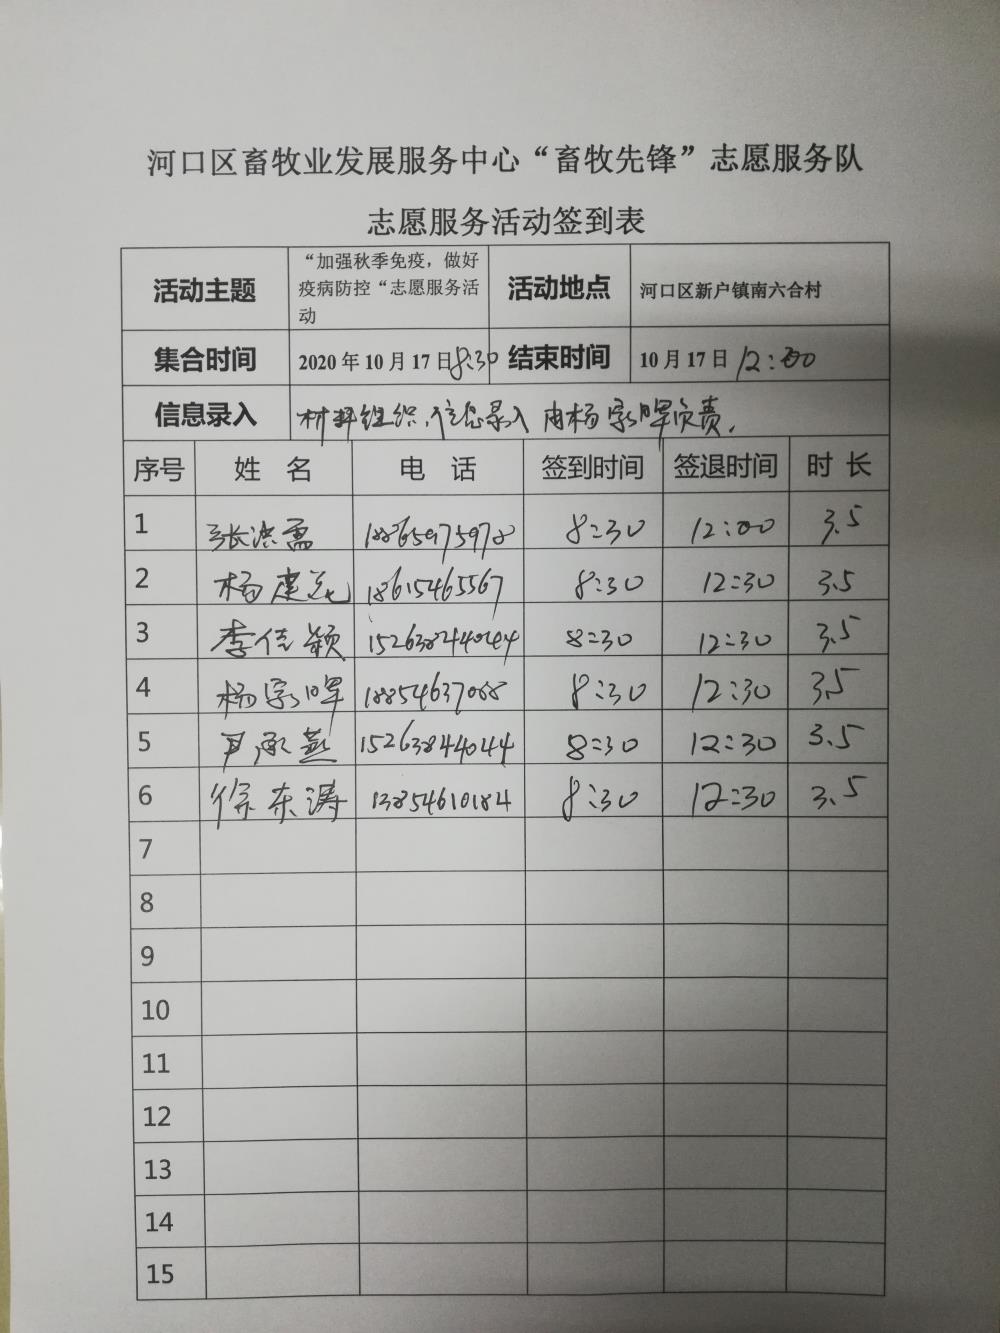 河口区畜牧业发展服务中心“畜牧先锋”志愿服务队
志愿服务活动签到表
活动主题 “加强秋季免疫，做好疫病防控“志愿服务活动 活动地点 河口区新户镇南六合村
集合时间 2020年10月17日8:30 结束时间 10月17日12:00
信息录入 材料组织、信息录入由杨家晖负责.
序号 姓 名 电 话 签到时间 签退时间 时 长
1 张洪儒 8:30 12:00 3.5
2 杨建 18615465567 8:30 12:30 3.5
3 李佳颖 8:30 12:30 3.5
4 杨家晖 18854637088 8:30 12:30 3.5
5 尹承燕 15263844044 8:30 12:30 3.5
6 徐东涛 13854610184 8:30 12:30 3.5
7
8
9
10
11
12
13
14
15